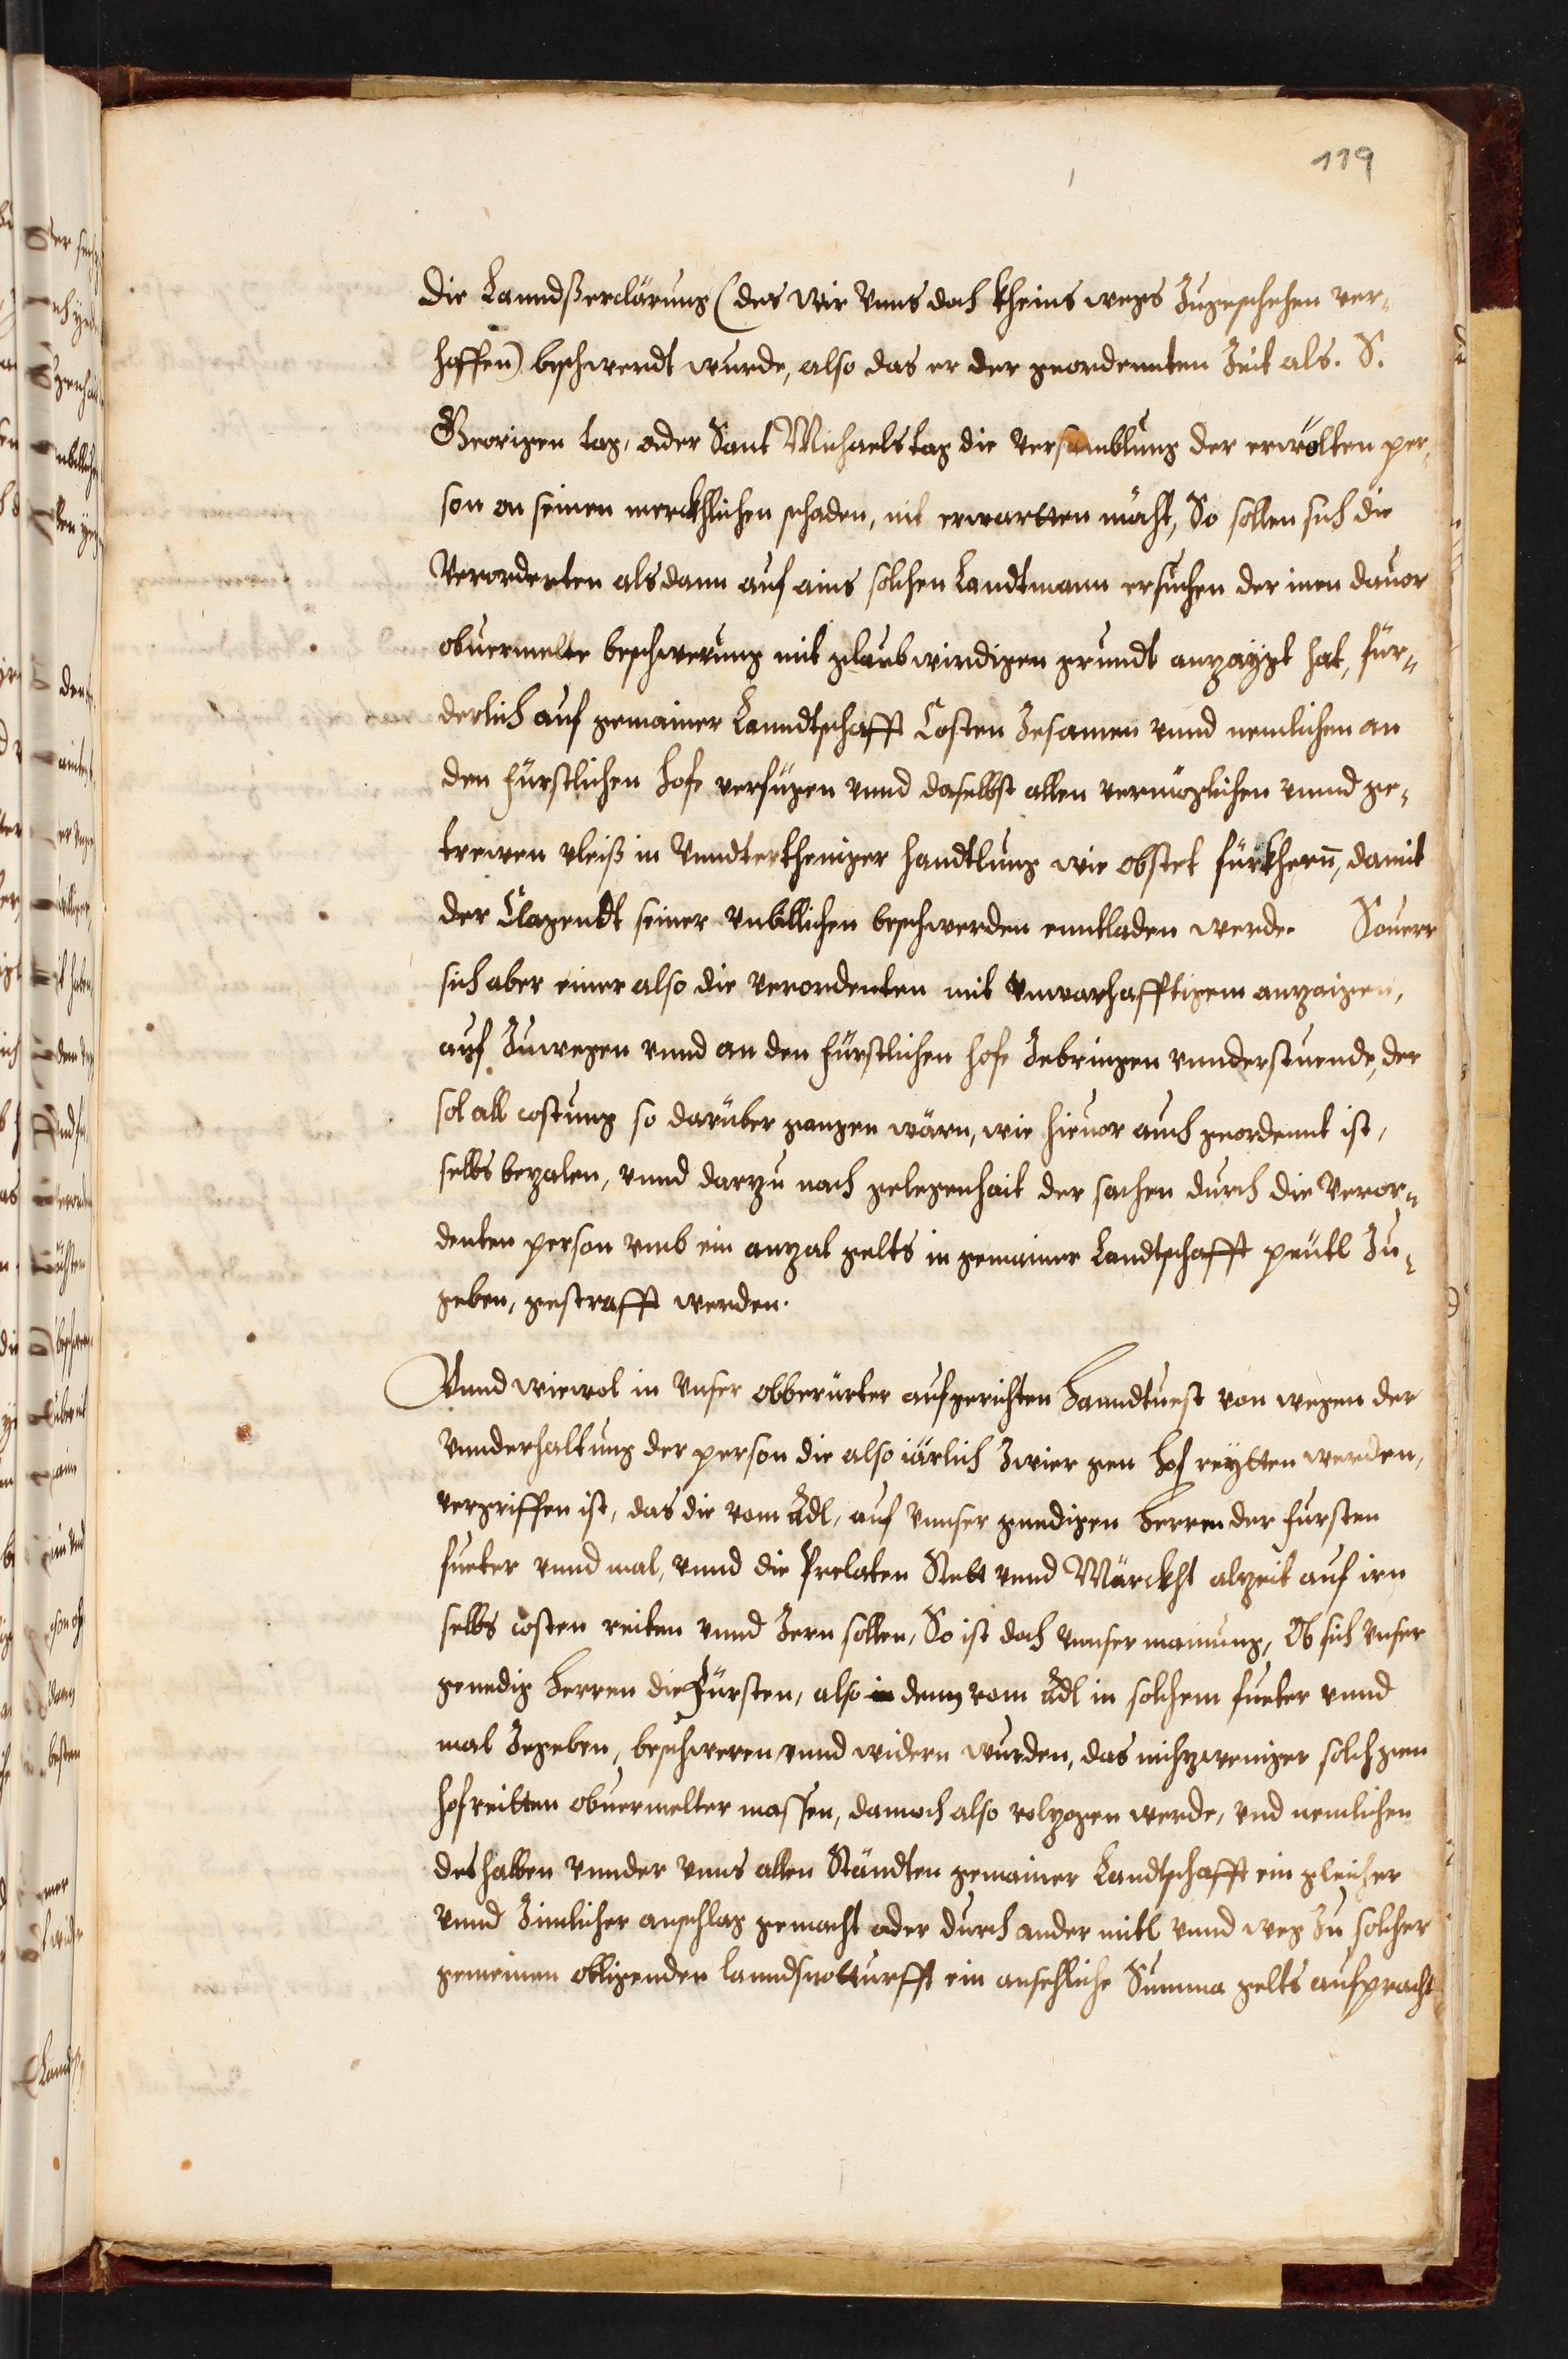 119
die Lanndßerclärung (des wir vnns doch kheins wegs zugeschehen ver¬
hoffen) beschwerdt wurde, also das er der geordennten Zeit als. S.
Georigen tag, oder Sant Michaelstag die versamblung der erwölten per¬
son on seinen merckhlichen schaden, nit erwartten möcht, So sollen sich die
Verordenten alsdann auf ains solchen Landtmann ersuchen der inen dauor
obuermelte beschwerung mit glaubwirdigen grundt anzaygt hat, für¬
derlich auf gemainer Lanndtschafft Costen zesamen vnnd nemlichen an
den fürstlichen hofe verfuegen vnnd daselbst allen vermöglichen vnnd ge¬
treiwen vleiß in vnndertheniger handtlung wie obstet fürkhern, damit
der Clagendt seiner vnbillichen beschwerden enntladen werde. Souerr
sich aber einer also die verordenten mit vnwarhafftigem anzaigen,
auf Zuwegen vnnd an den fürstlichen hofe zebringen vnnderstuende, der
sol all costung so darüber gangen wärn, wie hieuor auch geordennt ist,
selbs bezalen, vnnd darzu nach gelegenhait der sachen durch die veror¬
denten person vmb ein anzal gelts in gemainer Landtschafft peütl zu¬
geben, gestrafft werden.
Vnnd wiewol in vnser obberürter aufgerichten Lanndtuest von wegen der
vnnderhaltung der person die also iärlich zwier gen hof reytten werden,
vergriffen ist, das die vom Adl, auf vnnser gnedigen Herren der fursten
fueter vnnd mal, vnnd die Prelaten Stett vnnd Märckht alzeit auf irn
selbs costen reiten vnnd zern sollen, So ist doch vnnser mainung, Ob sich vnser
genedig Herren die Fürsten, also denn vom Adl in solchem fueter vnnd
mal zegeben, beschweren vnnd widern wurden, das nichzweniger solch gen
hof reitten obuermelter massen, dannoch also volzogen werde, vnd nemlichen
deshalben vnnder vnns allen Ständten gemainer Landtschafft ein gleicher
vnnd zimlicher anschlag gemacht oder durch ander mitl vnnd weg zu solcher
gemeinen obligender lanndsnotturfft ein ansehliche Summa gelts aufpracht